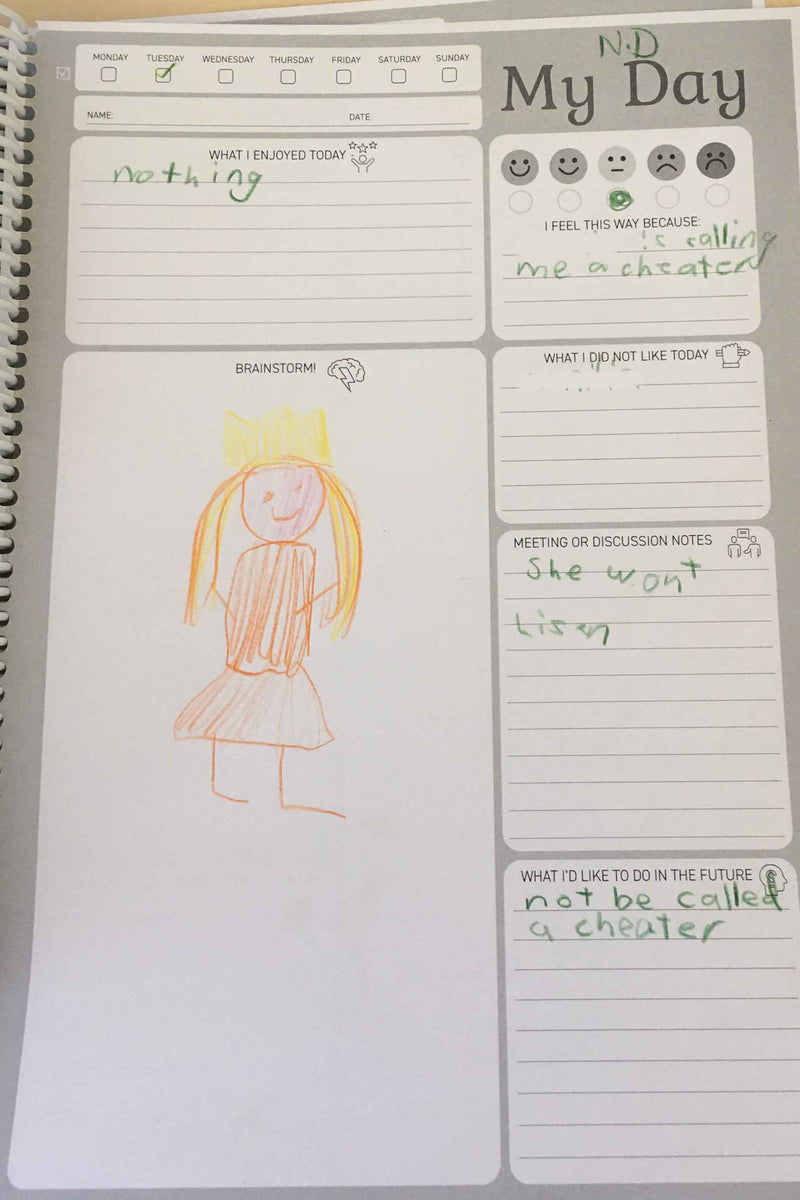 N.D
My Day
MONDAY TUESDAY WEDNESDAY THURSDAY FRIDAY SATURDAY SUNDAY
NAME: DATE:
WHAT I ENJOYED TODAY
nothing
I FEEL THIS WAY BECAUSE:
is calling
me a cheater
WHAT I DID NOT LIKE TODAY
BRAINSTORM!
MEETING OR DISCUSSION NOTES
She wont
Lisen
WHAT I'D LIKE TO DO IN THE FUTURE
not be called
a cheater